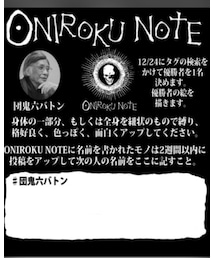 ONIROKU NOTE
12/24にタグの検索を
かけて優勝者を1名
決めます。
優勝者の絵を
描きます。
団鬼六バトン
ONIROKU NOTE
身体の一部分、もしくは全身を紐状のもので縛り、
格好良く、色っぽく、面白くアップしてください。
ONIROKU NOTEに名前を書かれたモノは2週間以内に
投稿をアップして次の人の名前をここに記すこと。
#団鬼六バトン